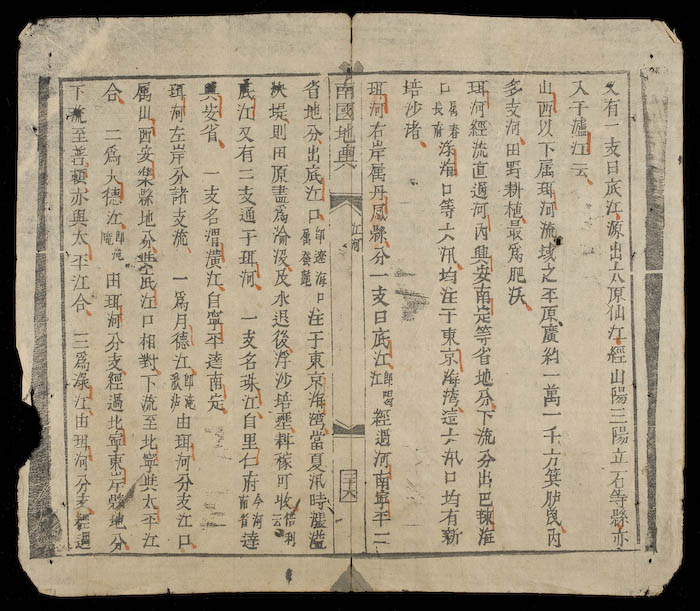 又有一支曰底江源出太原仙江經山陽三陽立石等縣亦
入于瀘江云
山西以下属珥河流域之平原廣約一萬一千方箕內
多支河田野耕植最爲肥沃
珥河經流直過河內興安南定等省地分下流分出巴辣海
口属春長府海口等六汛均注于東京海湾這六汛口均有新
培沙渚
珥河右岸属丹鳳縣分一支曰底江即喝江經過河南寧平二
南國地輿 江河 三十六
省地分出底江口即遼海口属發艷注于東京海湾當夏汛時漲溢
堤則田原盡爲渝没及水退後浮沙培壅耕稼可收倍利云
底江又有二支通于珥河 一支名珠江自里仁府今河南省達
興安省 一支名渭潢江自寧平達南定
珥河左岸分諸支流 一爲月德江即滝由珥河分支江口
属山西安樂縣地分與底江口相對下流至北寧與太平江
合 二爲天德江即滝由珥河分支經過北寧東岸縣地分
下流至善賴亦與太平江合 三爲江由珥河分支經過